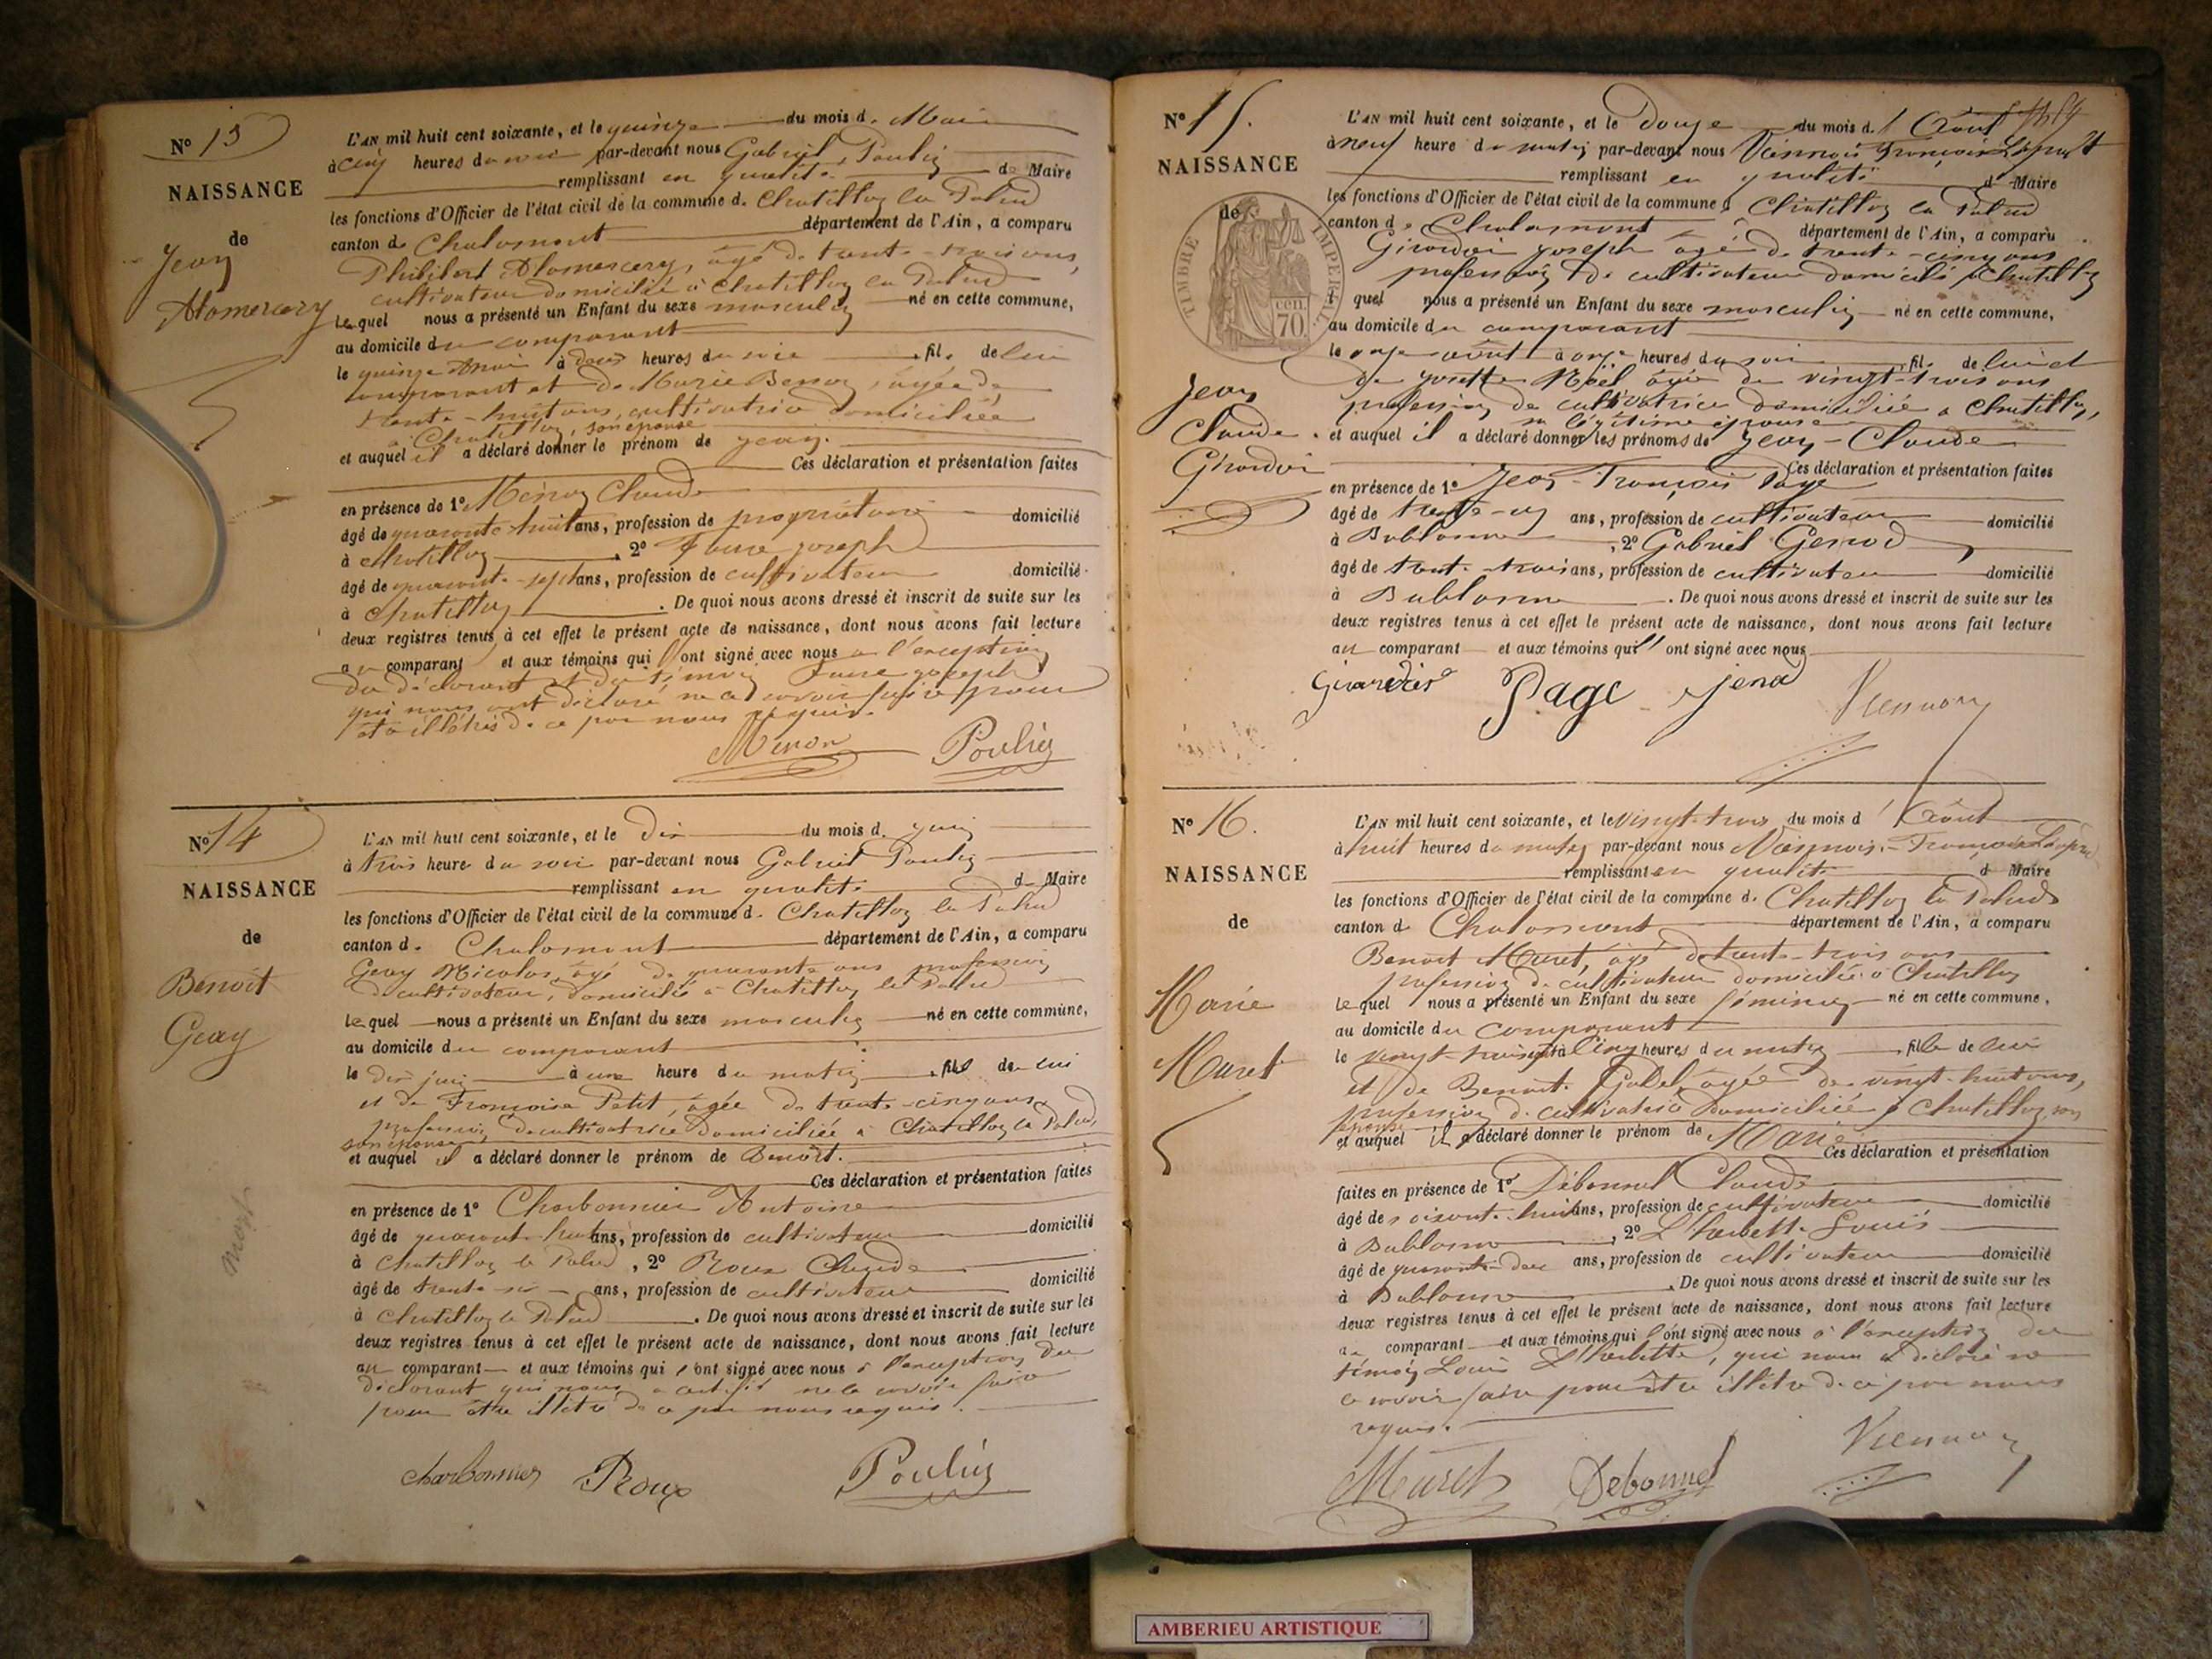 N° 13
NAISSANCE
de
Jean
L'AN mil huit cent soixante, et le quinze du mois d. Mai
à cinq heures du soir par-devant nous Gabriel Poulin
remplissant en qualité de Maire
les fonctions d'Officier de l'état civil de la commune d. Chatillon la Palud
canton de Chalamont département de l'Ain, a comparu
Philibert âgé de trente-trois ans,
cultivateur domicilié à Chatillon la Palud
Lequel nous a présenté un Enfant du sexe masculin né en cette commune,
au domicile du comparant
le quinze Mai à deux heures du soir , fils de lui
comparant et de Marie âgée de
trente-huit ans, cultivatrice domiciliée
à Chatillon, son épouse
et auquel il a déclaré donner le prénom de Jean.
Ces déclaration et présentation faites
en présence de 1° Menon Claude
âgé de quarante-huit ans, profession de propriétaire domicilié
à Chatillon , 2° Faure joseph
âgé de quarante-sept ans, profession de cultivateur domicilié
à Chatillon . De quoi nous avons dressé et inscrit de suite sur les
deux registres tenus à cet effet le présent acte de naissance, dont nous avons fait lecture
au comparant et aux témoins qui l'ont signé avec nous à l'exception
du déclarant et du témoin Faure joseph
qui nous ont déclaré ne le savoir faire pour
être illétrés de ce par nous requis.
Menon Poulin
N° 14
NAISSANCE
de
Benoît
Geay
L'AN mil huit cent soixante, et le Dix du mois d. juin
à trois heure du soir par-devant nous Gabriel Poulin
remplissant en qualité de Maire
les fonctions d'Officier de l'état civil de la commune d. Chatillon la Palud
canton d. Chalamont département de l'Ain, a comparu
Geay Nicolas, âgé de quarante ans profession
de cultivateur, domicilié à Chatillon la Palud
Lequel nous a présenté un Enfant du sexe masculin né en cette commune,
au domicile du comparant
le dix juin à une heure du matin , fils de lui
et de Françoise Petit, âgée de trente-cinq ans
profession de cultivatrice domiciliée à Chatillon la Palud,
son épouse
et auquel il a déclaré donner le prénom de Benoît.
Ces déclaration et présentation faites
en présence de 1° Charbonnier Antoine
âgé de quarante-huit ans, profession de cultivateur domicilié
à Chatillon la Palud , 2° Roux Claude
âgé de trente-six ans, profession de cultivateur domicilié
à Chatillon la Palud . De quoi nous avons dressé et inscrit de suite sur les
deux registres tenus à cet effet le présent acte de naissance, dont nous avons fait lecture
au comparant et aux témoins qui l'ont signé avec nous à l'exception du
déclarant qui nous a certifié ne le savoir faire
pour être illétré de ce par nous requis.
Charbonnier Roux Poulin
N° 15.
NAISSANCE
de
TIMBRE IMPERIAL
cen.
70.
Jean
Claude
Girardin
L'AN mil huit cent soixante, et le douze du mois d'Août
à neuf heure du matin par-devant nous François
remplissant en qualité de Maire
les fonctions d'Officier de l'état civil de la commune d. Chatillon la Palud
canton de Chalamont département de l'Ain, a comparu
Girardin joseph âgé de trente-cinq ans
profession de cultivateur domicilié à Chatillon
quel nous a présenté un Enfant du sexe masculin né en cette commune,
au domicile du comparant
le onze août à onze heures du soir , fils de lui et
de Josette Noël âgée de vingt-trois ans
profession de cultivatrice domiciliée à Chatillon,
sa légitime épouse
et auquel il a déclaré donner les prénoms de Jean-Claude
Ces déclaration et présentation faites
en présence de 1° Jean-François Page
âgé de trente-un ans, profession de cultivateur domicilié
à Bublanne , 2° Gabriel Genod
âgé de trente-trois ans, profession de cultivateur domicilié
à Bublanne . De quoi nous avons dressé et inscrit de suite sur les
deux registres tenus à cet effet le présent acte de naissance, dont nous avons fait lecture
au comparant et aux témoins qui l'ont signé avec nous
Page jenod
N° 16.
NAISSANCE
de
Marie
Muret
L'AN mil huit cent soixante, et le vingt-trois du mois d'Août
à huit heures du matin par-devant nous François
remplissant en qualité d. Maire
les fonctions d'Officier de l'état civil de la commune d. Chatillon la Palud
canton de Chalamont département de l'Ain, a comparu
Benoit Muret, âgé de trente-trois ans
profession de cultivateur domicilié à Chatillon
Lequel nous a présenté un Enfant du sexe féminin né en cette commune,
au domicile du comparant
le vingt-trois août à cinq heures du matin , fille de lui
et de Benoite âgée de vingt-huit ans,
profession de cultivatrice domiciliée à Chatillon son
épouse
et auquel il a déclaré donner le prénom de Marie
Ces déclaration et présentation
faites en présence de 1° Débonnel Claude
âgé de soixante-huit ans, profession de cultivateur domicilié
à Bublanne , 2° L'herbette Louis
âgé de quarante-deux ans, profession de cultivateur domicilié
à Bublanne . De quoi nous avons dressé et inscrit de suite sur les
deux registres tenus à cet effet le présent acte de naissance, dont nous avons fait lecture
au comparant et aux témoins qui l'ont signé avec nous à l'exception du
témoin Louis L'herbette, qui nous a déclaré ne
le savoir faire pour être illétré de ce par nous
requis.
Muret Debonnel
AMBERIEU ARTISTIQUE